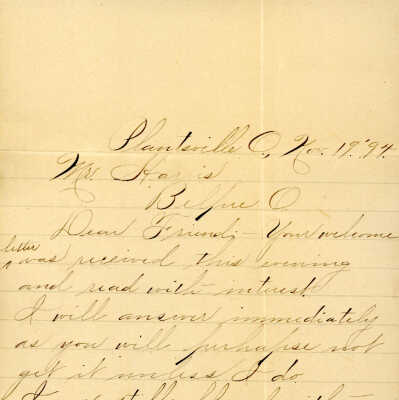 Plantsville O., Nov. 19, '94.
Mr. Harris
Belpre O.
Dear Friend;— Your welcome
letter
was received this evening
and read with interest.
I will answer immediately
as you will perhapse not
get it unless I do.